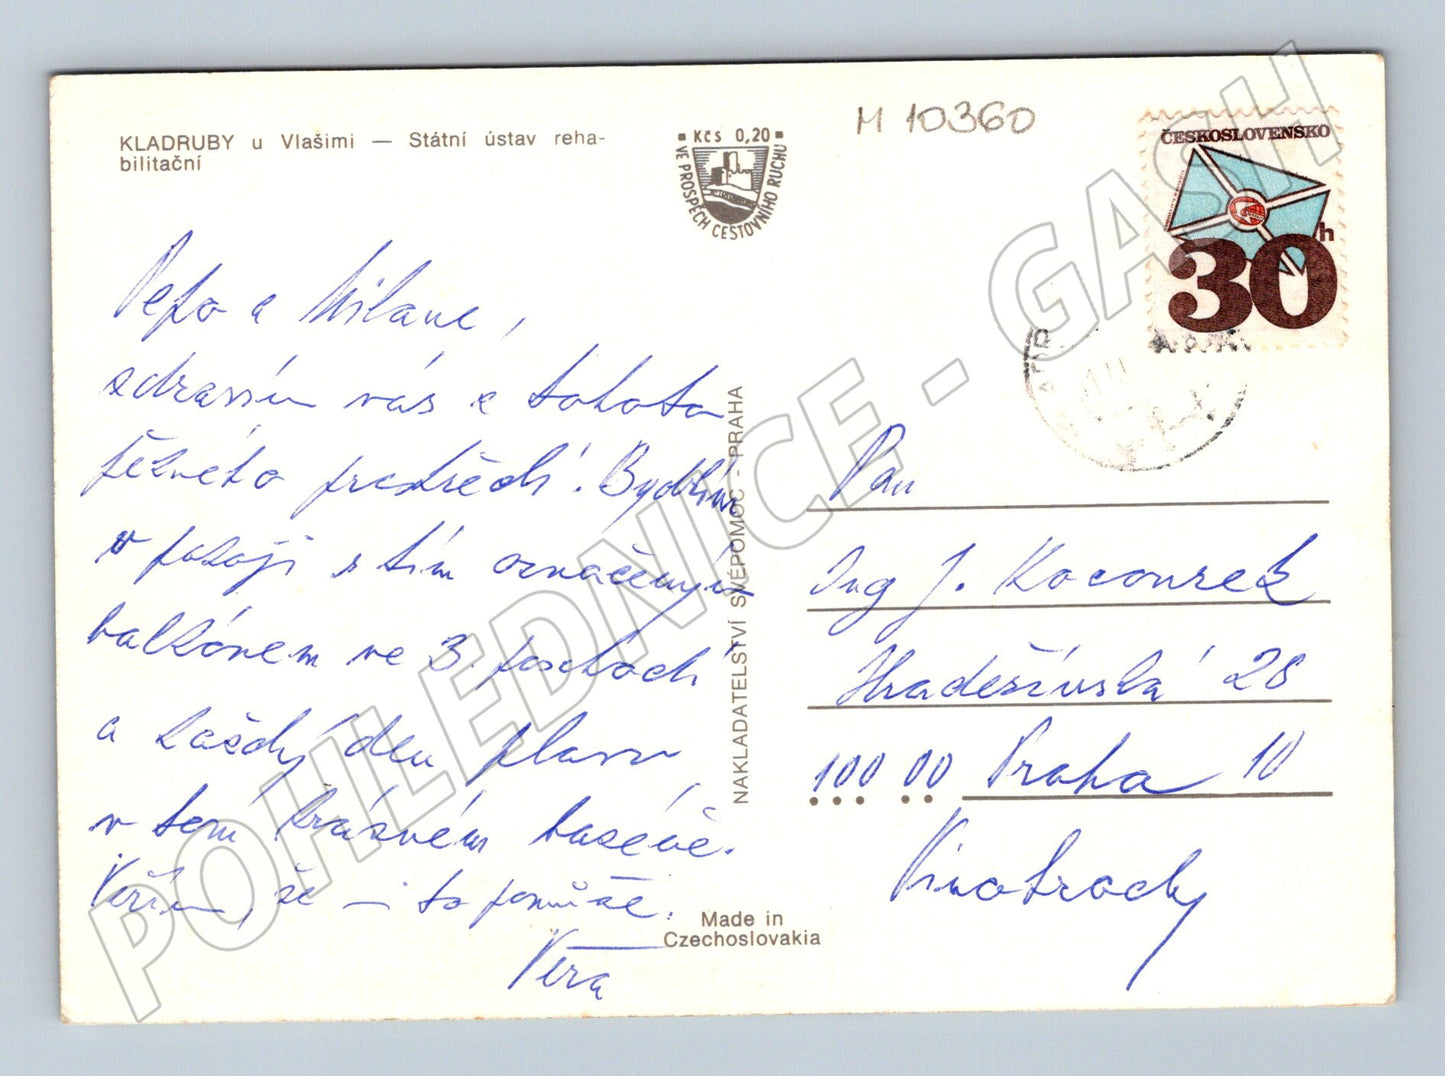 KLADRUBY u Vlašimi — Státní ústav reha-
bilitační
Kčs 0,20
VE PROSPĚCH CESTOVNÍHO RUCHU
M 10360
ČESKOSLOVENSKO
30h
Pepo a Milane,
zdravím vás z tohoto
prostředí. Bydlím
v pokoji s tím označeným
balkónem ve 3. poschodí
a každý den plavu
v tom krásném baséně.
Věřím, že to pomůže.
Věra
NAKLADATELSTVÍ SVÉPOMOC - PRAHA
Made in
Czechoslovakia
Pan
Ing J. Kocourek
Hradešínská 28
100 00 Praha 10
Vinohrady
POHLEDNICE - GASH